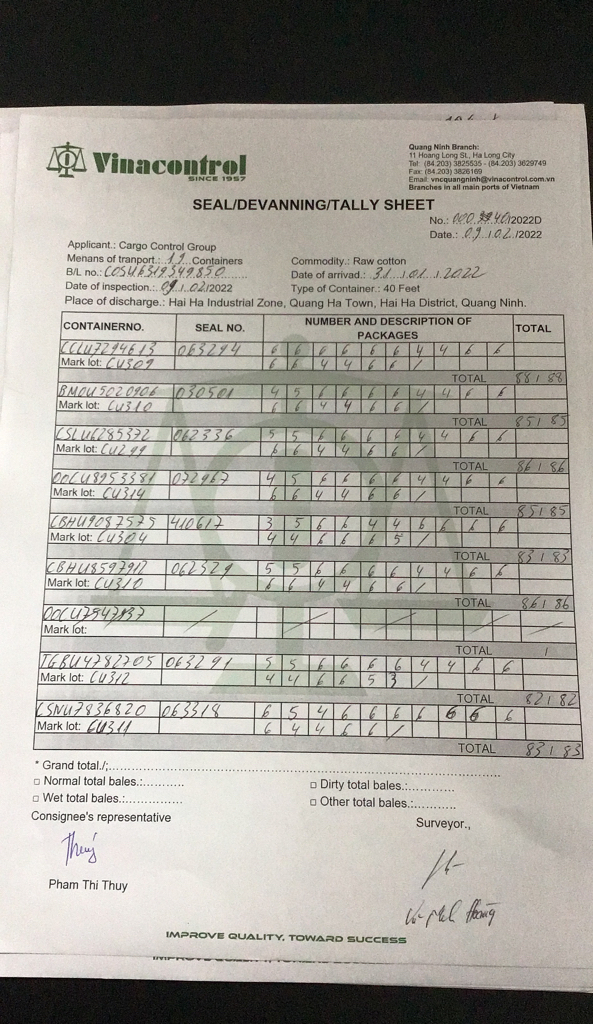 Vinacontrol
SINCE 1957
Quang Ninh Branch:
11 Hoang Long St., Ha Long City
Tel: (84.203) 3825535 - (84.203) 3629749
Fax: (84.203) 3826169
Email: vncquangninh@vinacontrol.com.vn
Branches in all main ports of Vietnam
SEAL/DEVANNING/TALLY SHEET
No.: /2022D
Date.: 09/02/2022
Applicant.: Cargo Control Group
Menans of tranport.: 11 Containers
Commodity.: Raw cotton
B/L no.: COSU6319549850
Date of arrivad.: 31/01/2022
Date of inspection.: 09/02/2022
Type of Container.: 40 Feet
Place of discharge.: Hai Ha Industrial Zone, Quang Ha Town, Hai Ha District, Quang Ninh.
CONTAINERNO. SEAL NO. NUMBER AND DESCRIPTION OF PACKAGES TOTAL
CCLU7294613 063294 6 6 6 6 6 6 4 4 6 6
Mark lot: CU309 6 6 4 4 6 6 /
TOTAL 88/88
BMOU5020906 030501 4 5 6 6 6 6 4 4 6 6
Mark lot: CU310 6 6 4 4 6 6 /
TOTAL 85/85
CSLU6285372 062336 5 5 6 6 6 6 4 4 6 6
Mark lot: CU299 6 6 4 4 6 6 /
TOTAL 86/86
OOCU8953381 072967 4 5 6 6 6 6 4 4 6 6
Mark lot: CU314 6 6 4 4 6 6 /
TOTAL 85/85
CBHU9087575 410617 3 5 6 6 4 4 6 6 6 6
Mark lot: CU304 4 4 6 6 6 5 /
TOTAL 83/83
CBHU8597917 062529 5 5 6 6 6 6 4 4 6 6
Mark lot: CU310 6 6 4 4 6 6 /
TOTAL 86/86
OOCU7947937 / / / / /
Mark lot:
TOTAL /
TGBU4782705 063291 5 5 6 6 6 6 4 4 6 6
Mark lot: CU312 4 4 6 6 5 3 /
TOTAL 82/82
CSNU7836820 063318 6 5 4 6 6 6 6 6 6 6
Mark lot: CU311 6 4 4 6 6 /
TOTAL 83/83
* Grand total./;
□ Normal total bales.: □ Dirty total bales.:
□ Wet total bales.: □ Other total bales.:
Consignee's representative Surveyor.,
Thuý
Pham Thi Thuy
IMPROVE QUALITY, TOWARD SUCCESS